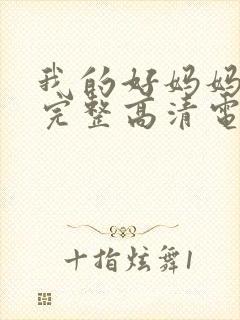 我的好妈妈
完整高清電
十指炫舞1